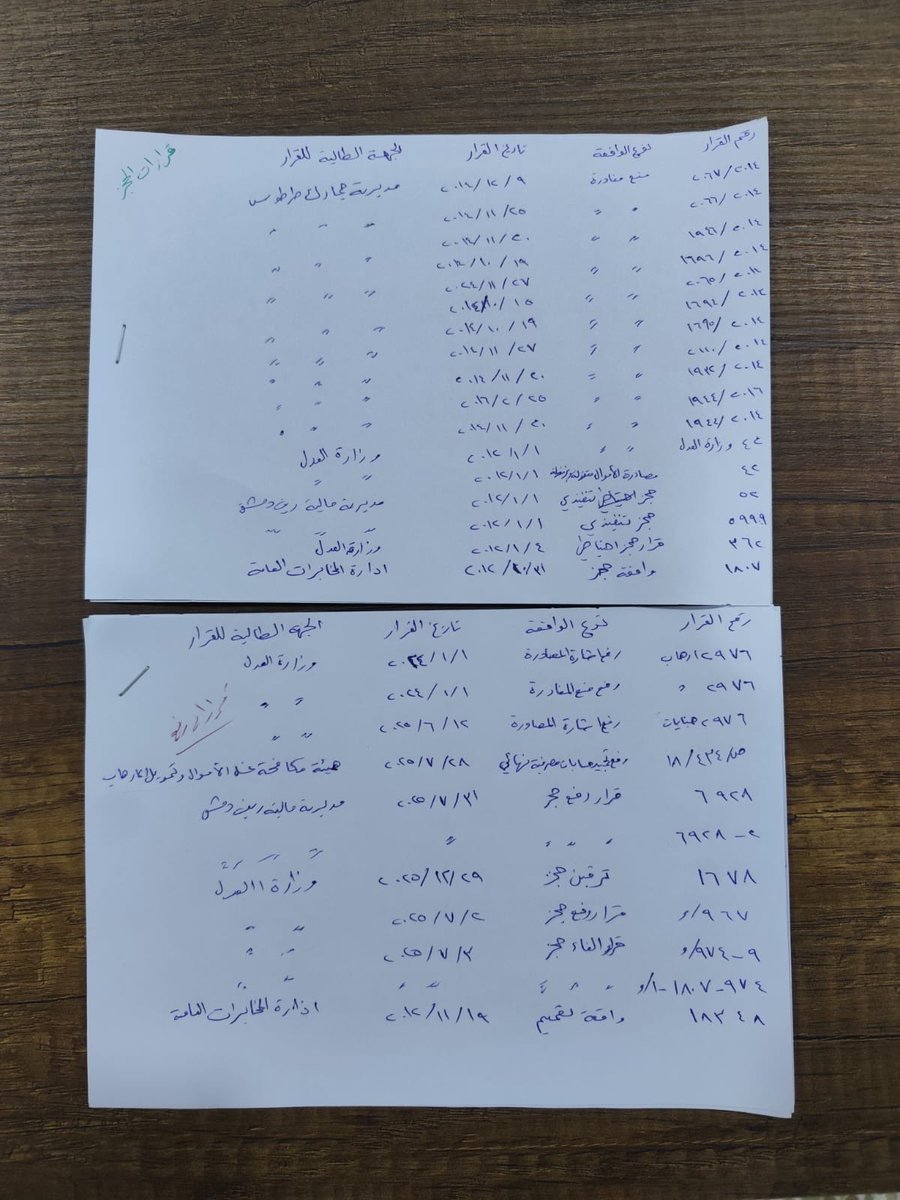 قرارات الحجز
رقم القرار نوع الواقعة تاريخ القرار الجهة الطالبة للقرار
٢٠١٤/٢٠٦٧ منع مغادرة ٢٠١٤/١٢/٩ مديرية جمارك طرطوس
٢٠١٤/٢٠٦٦ " " ٢٠١٤/١١/٢٥ " " "
٢٠١٤/١٩٤٦ " " ٢٠١٤/١١/٢٠ " " "
٢٠١٤/١٦٩٦ " " ٢٠١٤/١٠/١٩ " " "
٢٠٦٥ " " ٢٠٢٤/١١/٢٧ " " "
٢٠١٢/١٦٩٤ " " ١٥
٢٠١٢/١٦٩٥ " " ٢٠١٢/١٠/١٩ " " "
٢٠١٤/٢١١٠ " " ٢٠١٤/١١/٢٧ " " "
٢٠١٤/١٩٣٢ " " ٢٠١٤/١١/٢٠ " " "
٢٠١٦/١٩٤٤ " " ٢٠١٦/٢/٢٥ " " "
٢٠١٤/١٩٤٤ " " ٢٠١٤/١١/٢٠ " " "
٤٢ وزارة العدل " " ٢٠١٢/١/١ وزارة العدل
٤٢ مصادرة الأموال ٢٠١٢/١/١ " "
٥٢ حجز تنفيذي ٢٠١٢/١/١ مديرية مالية ريف دمشق
٥٩٩٩ حجز تنفيذي ٢٠١٢/١/١ " " "
٣٦٢ قرار حجز احتياطي ٢٠١٢/١/٤ وزارة العدل
١٨٠٧ واقعة حجز ٣١ ادارة المخابرات العامة
رقم القرار نوع الواقعة تاريخ القرار الجهة الطالبة للقرار
٢٩٧٦ ارهاب رفع اشارة المصادرة ٢٠٢٤/١/١ وزارة العدل
٢٩٧٦ " رفع منع المغادرة ٢٠٢٤/١/١ " "
٢٩٧٦ جنايات رفع اشارة المصادرة ٢٠٢٥/٦/١٢ " "
١٨/٤٣٤/ص رفع تجميد حسابات مصرفية نهائي ٢٠٢٥/٧/٢٨ هيئة مكافحة غسل الأموال وتمويل الارهاب
٦٩٢٨ قرار رفع حجز ٢٠٢٥/٧/٣١ مديرية مالية ريف دمشق
٢-٦٩٢٨ " " " " " " "
١٦٧٨ ترقين حجز ٢٠٢٥/١٢/٢٩ وزارة العدل
٩٦٧/و قرار رفع حجز ٢٠٢٥/٧/٢ " "
٩-٩٧٤/و قرار الغاء حجز ٢٠٢٥/٧/٣ " "
٩٧٤-١٨٠٧-١/و " " " " " " "
١٨٣٤٨ واقعة تعميم ٢٠١٢/١١/١٩ ادارة المخابرات العامة